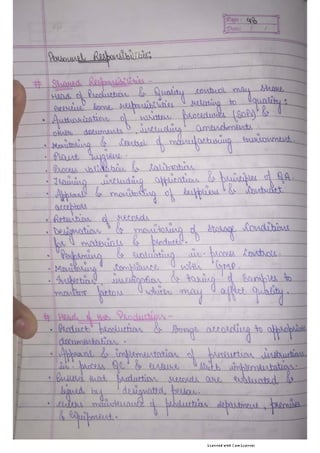 Page: 48
Date: / /
Personnel Responsibilities:
# Shared Responsibilities -
Head of Production & Quality control may share
some responsibilities relating to quality:
• Authorization of written procedures (SOPs) &
other documents including amendments
• Monitoring & control of manufacturing environment.
• Plant hygiene
• Process validation & calibration
• Training, including application & principles of Q.A.
• Approval & monitoring of suppliers & contract
acceptors
• Retention of records
• Designation & monitoring of storage conditions
for materials & product.
• Performing & evaluating in-process controls.
• Monitoring compliance with GMP.
• Inspection, investigation & taking of samples to
monitor factors which may affect quality
# Head of Production -
• Product production & storage according to appropriate
documentation.
• Approval & implementation of production instructions
in process QC & ensure strict implementation.
• Ensure that production records are evaluated &
signed by designated person.
• maintenance of production department, premises
& equipment.
Scanned with CamScanner